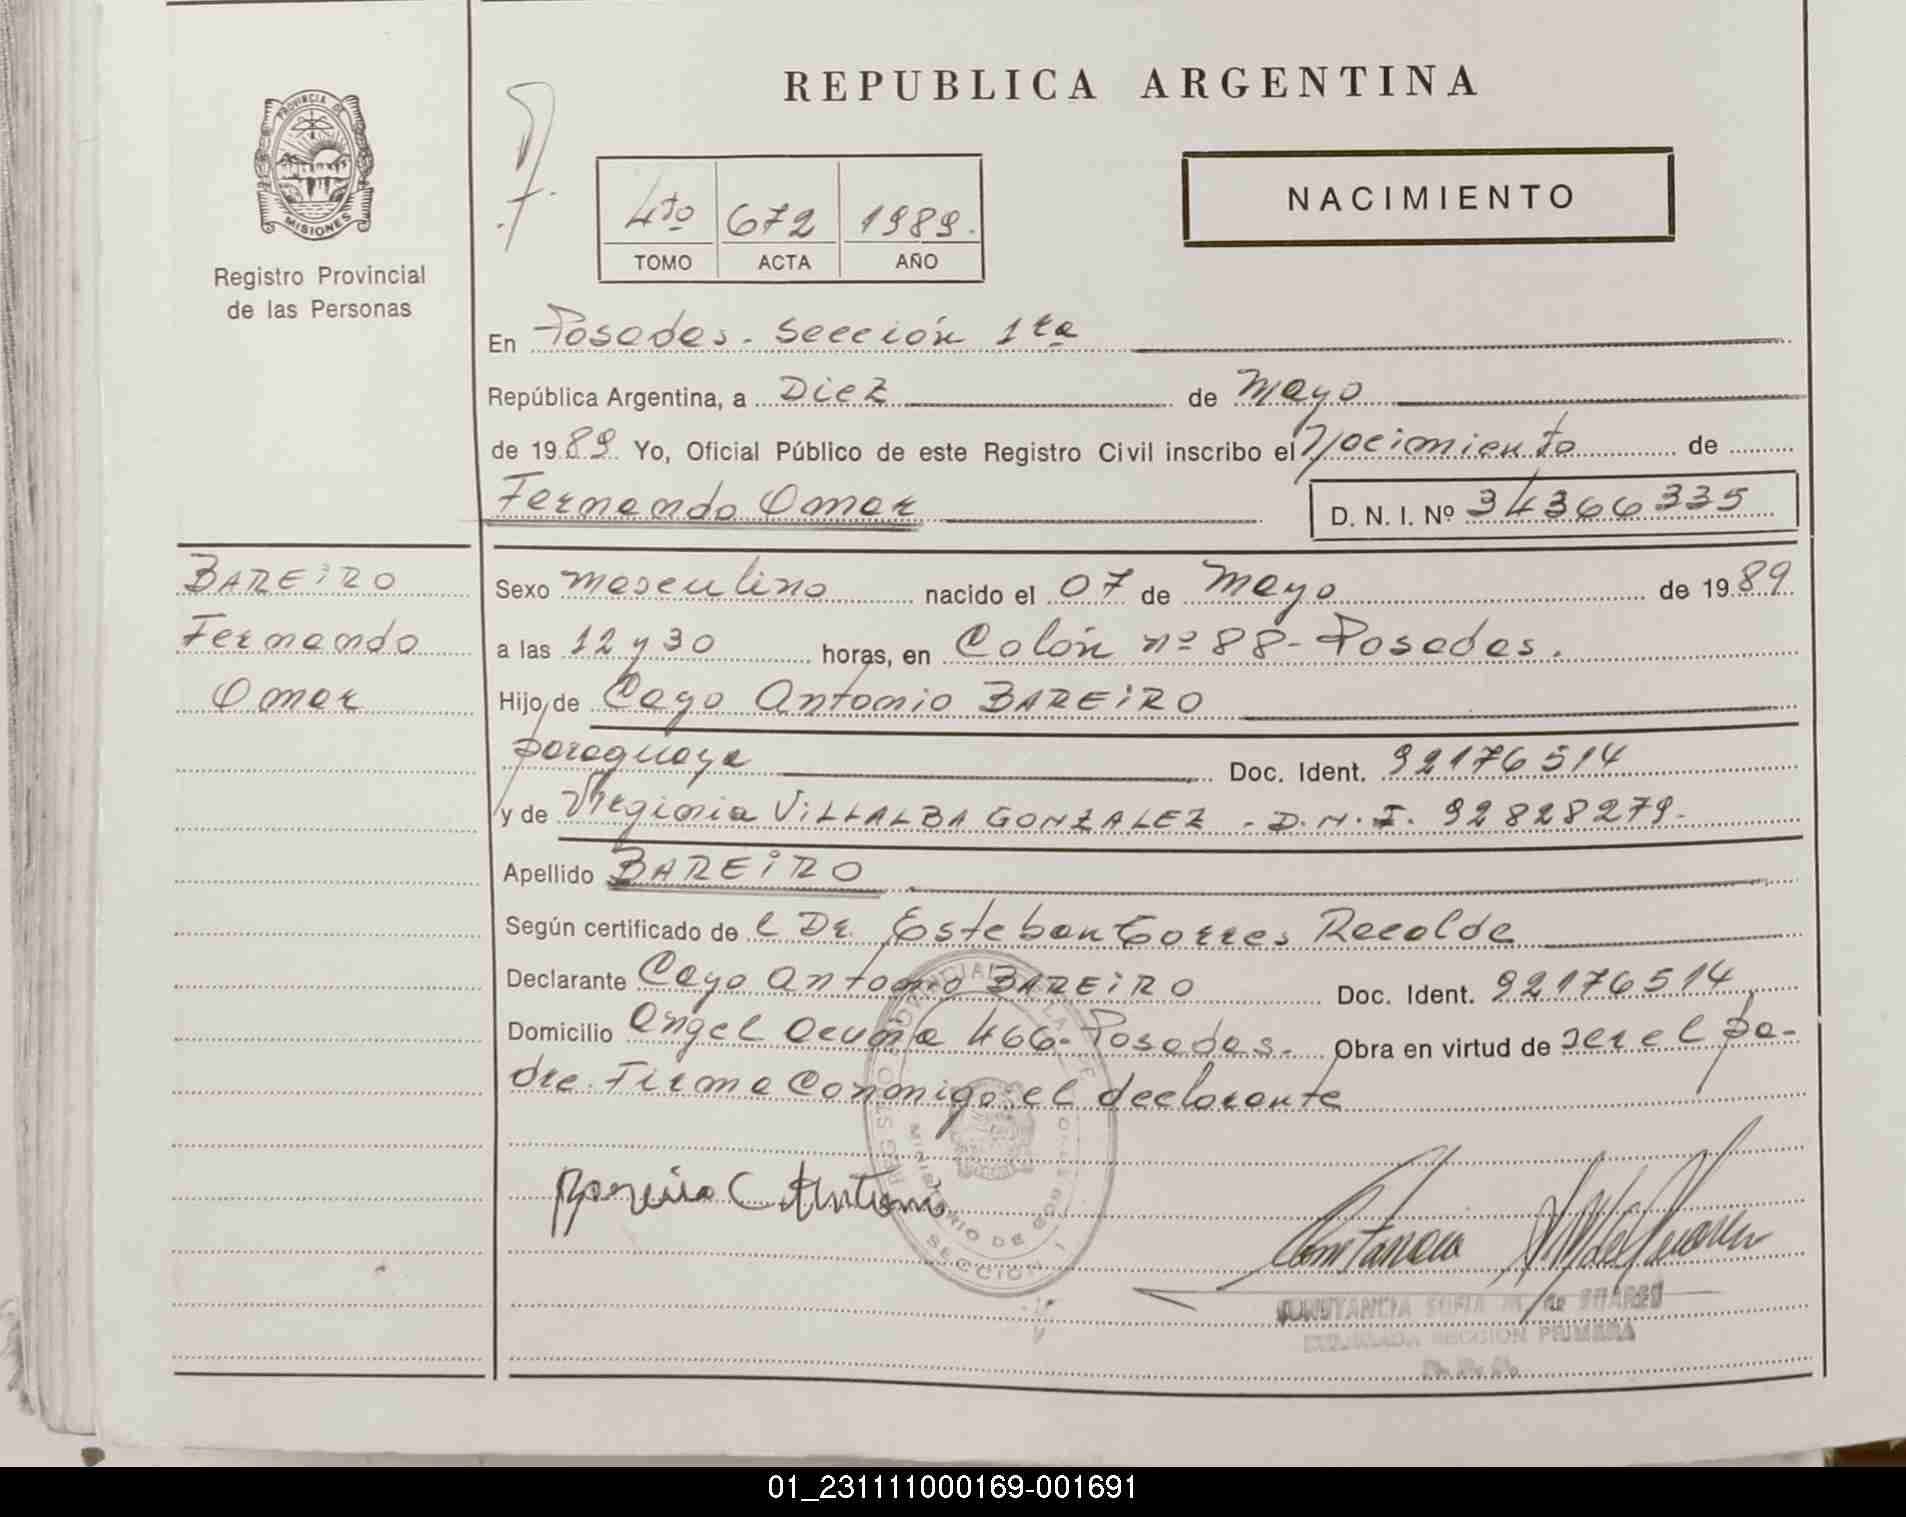 REPUBLICA ARGENTINA
PROVINCIA DE
MISIONES
Registro Provincial
de las Personas
4to 672 1989.
TOMO ACTA AÑO
NACIMIENTO
En Posadas. Sección 1ra
República Argentina, a Diez de Mayo
de 1989. Yo, Oficial Público de este Registro Civil inscribo el Nacimiento de
Fernando Omar D. N. I. Nº 34366335
BAREIRO
Fernando
Omar
Sexo masculino nacido el 07 de Mayo de 1989
a las 12 y 30 horas, en Colón nº 88 - Posadas.
Hijo de Cayo Antonio BAREIRO
paraguaya Doc. Ident. 92176514
y de Virginia VILLALBA GONZALEZ - D.N.I. 92828279-
Apellido BAREIRO
Según certificado de l Dr. Esteban Torres Recalde
Declarante Cayo Antonio BAREIRO Doc. Ident. 92176514
Domicilio Angel Acuña 466 - Posadas. Obra en virtud de ser el pa-
dre. Firma conmigo el declarante
Bareiro C Antoni
Constancia
CONSTANCIA SOFIA M. de SUAREZ
SECCION PRIMERA
MINISTERIO DE
SECCION 1
01_231111000169-001691